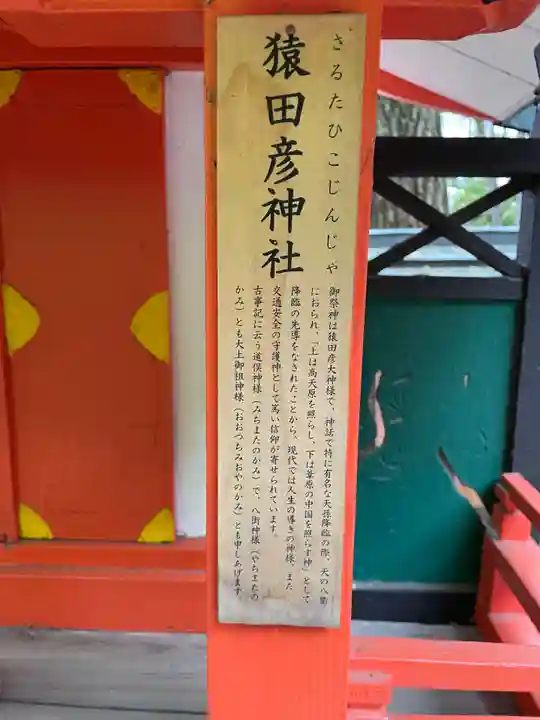 さるたひこじんじゃ
猿田彦神社
御祭神は猿田彦大神様で、神話で特に有名な天孫降臨の際、天の八衢
におられ、「上は高天原を照らし、下は葦原の中国を照らす神」として
降臨の先導をなされたことから、現代では人生の導きの神様、また
交通安全の守護神として篤い信仰が寄せられています。
古事記に云う道俣神様（みちまたのかみ）で、八街神様（やちまたの
かみ）とも大土御祖神様（おおつちみおやのかみ）とも申しあげます。